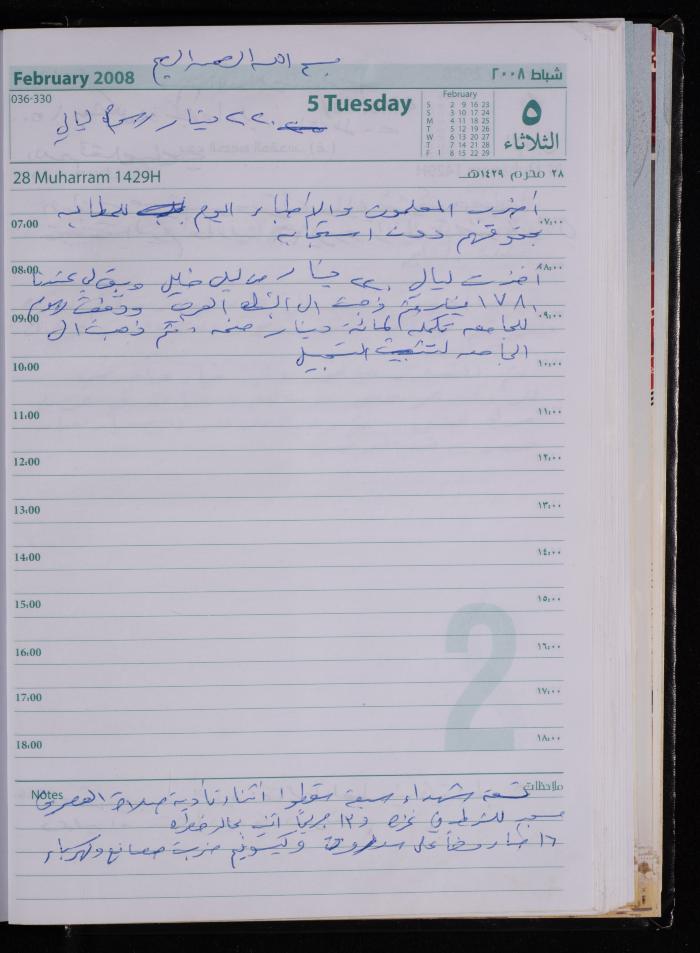 بسم الله الرحمن الرحيم
February 2008
شباط ٢٠٠٨
036-330
5 Tuesday
February
S 2 9 16 23
S 3 10 17 24
M 4 11 18 25
T 5 12 19 26
W 6 13 20 27
T 7 14 21 28
F 1 8 15 22 29
٥
الثلاثاء
٢٢٠ دينار رسوم ليالي
28 Muharram 1429H
٢٨ محرم ١٤٢٩هـ
أضرب المعلمون والأطباء اليوم للمطالبة
07:00 ٠٧:٠٠
بحقوقهم دون استجابة
08:00 ٠٨:٠٠
أخذت ليالي ٢٢٠ دينار من ليلى خليل وبقي لي عندها
١٧٨ دينار ثم ذهبت الى البنك العربي ودفعت رسوم
09:00 ٠٩:٠٠
للجامعة تكملة المائة دينار منحة، ثم ذهبت الى
الجامعة لتثبيت التسجيل
10:00 ١٠:٠٠
11:00 ١١:٠٠
12:00 ١٢:٠٠
13:00 ١٣:٠٠
14:00 ١٤:٠٠
15:00 ١٥:٠٠
16:00 ١٦:٠٠
17:00 ١٧:٠٠
18:00 ١٨:٠٠
2
Notes ملاحظات
تسعة شهداء سبعة سقطوا أثناء تأدية صلاة العصر في
مسجد للشرطة في غزة و ١٢ جريحاً اثنين بحالة خطرة
١٦ صاروخاً على سديروت وكيسوفيم ضربت مصانع وكهرباء